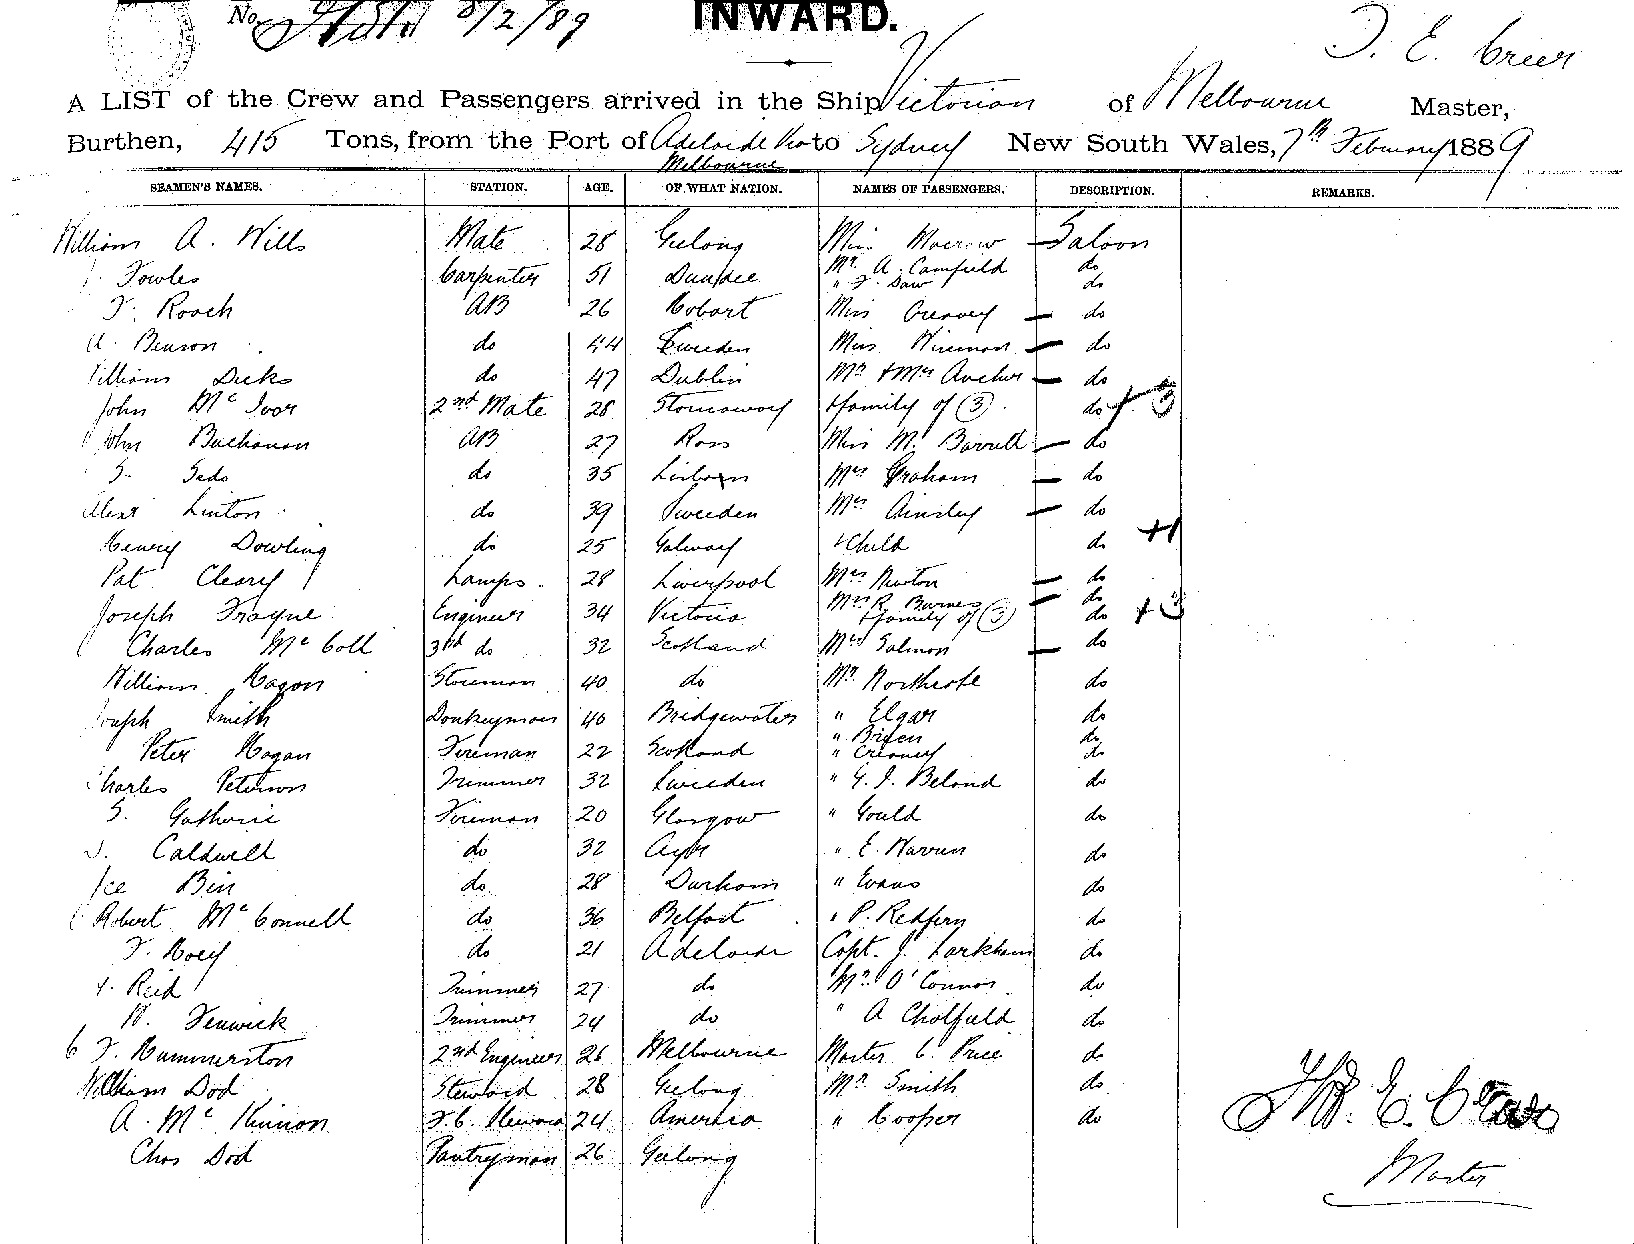 No. 8/2/89 INWARD.
T. E. Creer
A LIST of the Crew and Passengers arrived in the Ship Victorian of Melbourne Master,
Burthen, 415 Tons, from the Port of Adelaide via to Sydney New South Wales, 7th February 1889
Melbourne
SEAMEN'S NAMES. STATION. AGE. OF WHAT NATION. NAMES OF PASSENGERS. DESCRIPTION. REMARKS.
William A. Wills Mate 28 Geelong Miss Morrow Saloon
Fowles Carpenter 51 Dundee Mr. A. Camfield do
" F. Daw do
F. Roach AB 26 Hobart Miss Creavey do
A. Benson do 44 Sweeden Miss Wiseman do
William Dicks do 47 Dublin Mr & Mrs Archer do
John McIvor 2nd Mate 28 Stornoway & family of (3) do + 3
John Buchanan AB 27 Ross Miss M. Barrett do
S. do 35 Lisbon Mrs Graham do
Alexr Linton do 39 Sweeden Mrs Ainsley do
Henry Dowling do 25 Galway & Child do +1
Pat Cleary Lamps 28 Liverpool Mrs Newton do
Joseph Engineer 34 Victoria Mrs R. Barnes do
& family of (3) do + 3
Charles McColl 3rd do 32 Scotland Mrs Salmon do
William Hagon Storeman 40 do Mr. Northcote do
Joseph Smith Donkeyman 40 Bridgewater " Elgar do
" do
Peter Hogan Fireman 22 Scotland " Creavey do
Charles Peterson Trimmer 32 Sweeden " G. J. Beland do
S. Guthrie Fireman 20 Glasgow " Gould do
J. Caldwell do 32 Ayr " E. Warren do
Bin do 28 Durham " Evans do
Robert McConnell do 36 Belfast " P. Redfern do
F. Hoey do 21 Adelaide Capt. J. Larkham do
Reid Trimmer 27 do Mr. O'Connor do
W. Fenwick Trimmer 24 do " A Cholfield do
6 F. Hummerston 2nd Engineer 26 Melbourne Master C. Price do
William Dod Steward 28 Geelong Mr. Smith do
A. McKinnon F.C. Steward 24 America " Cooper do
Chas Dod Pantryman 26 Geelong
Thos. E. Creer
Master